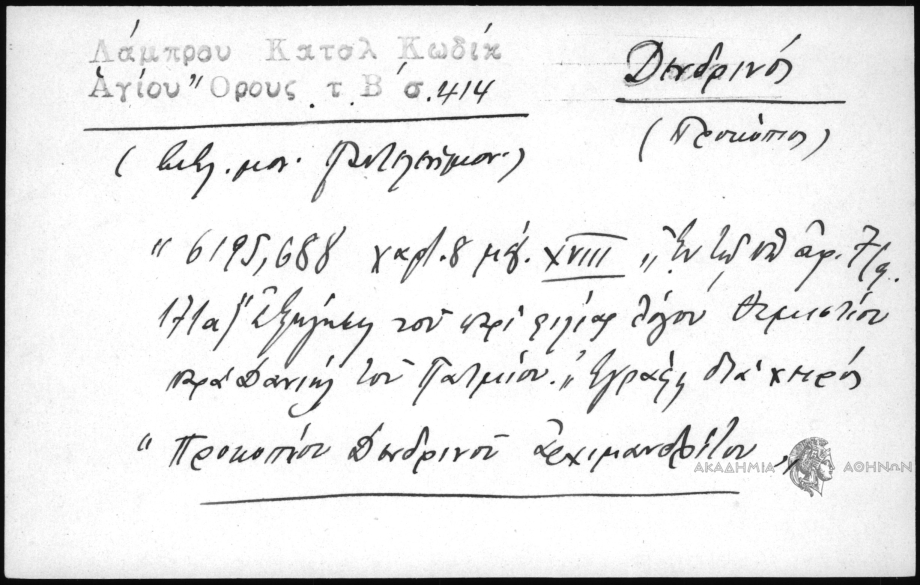 Λάμπρου Κατσλ Κωδίκ
Ἁγίου Ὄρους τ. Β´ σ. 414
Δενδρινός
(Προκόπιος)
( βιβλ. μον. Παντελεήμον. )
" 6195,688 χαρτ. 8 μεγ. XVIII „ Ἐν τῷ ὑπ' ἀρ. 7 (φ.
171α) Ἐξήγησις τοῦ περὶ φιλίας λόγου Θεμιστίου
παρὰ Δανιὴλ τοῦ Πατμίου. „ Ἐγράφη διὰ χειρός
" Προκοπίου Δενδρινοῦ ἀρχιμανδρίτου "
ΑΚΑΔΗΜΙΑ ΑΘΗΝΩΝ